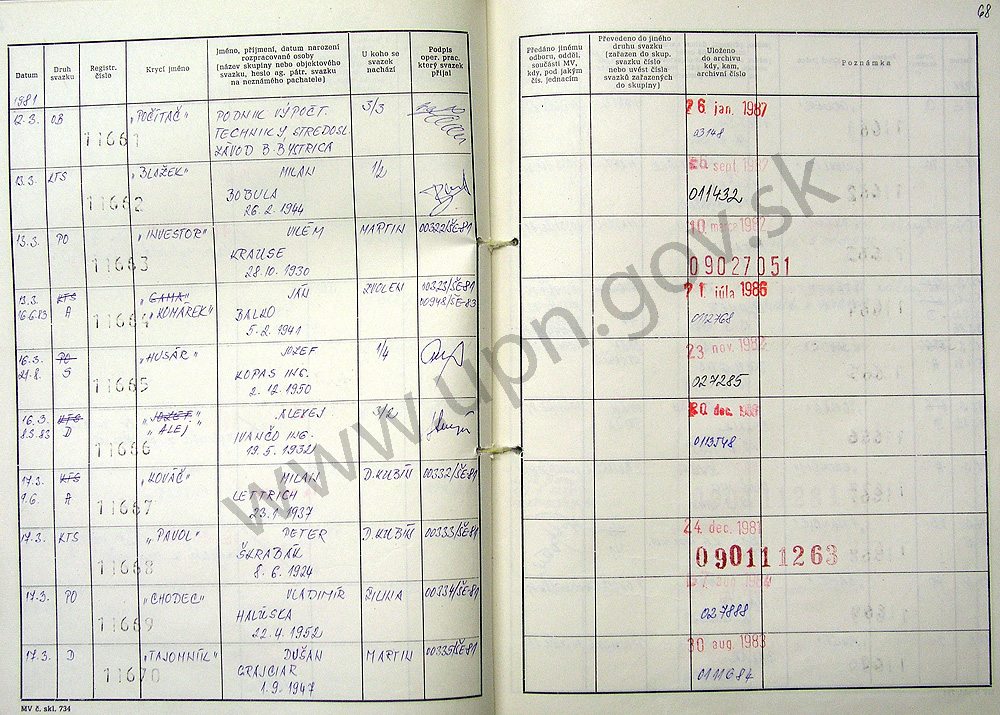 68
Datum
Druh svazku
Registr. číslo
Krycí jméno
Jméno, příjmení, datum narození rozpracované osoby (název skupiny nebo objektového svazku, heslo ag. pátr. svazku na neznámého pachatele)
U koho se svazek nachází
Podpis oper. prac. který svazek přijal
Předáno jinému odboru, odděl. součásti MV, kdy, pod jakým čís. jednacím
Převedeno do jiného druhu svazku (zařazen do skup. svazku číslo nebo uvést čísla svazků zařazených do skupiny)
Uloženo do archivu kdy, kam, archivní číslo
Poznámka
1981
12.3. OB 11661 "POČÍTAČ" PODNIK VÝPOČT. 3/3
TECHNIKY STREDOSL.
ZÁVOD B. BYSTRICA
26. jan. 1987
03148
13.3. KTS 11662 "BLAŽEK" MILAN 1/2
BOBULA
26.2.1944
sept.
011432
13.3. PO 11663 "INVESTOR" VILÉM MARTIN 00322/ŠE-81
KRAUSE
28.10.1930
10. marca 1982
09027051
13.3. KTS "GAMA" JÁN ZVOLEN 00323/ŠE-81
16.6.83 A 11664 "KOMÁREK" BALKO 00948/ŠE-83
5.2.1941
21. júla 1986
0112768
16.3. PO "HUSÁR" JOZEF 1/4
21.8. S 11665 KOPAS ING.
2.12.1950
23. nov. 1982
027285
16.3. KTS "JOZEF" ALEXEJ 3/2
8.3.83 D 11666 "ALEJ" IVANČO ING.
19.5.1932
20. dec.
0113548
17.3. KTS "KOVÁČ" MILAN D. KUBÍN 00332/ŠE-81
1.6. A 11667 LETTRICH
23.1.1937
17.3. KTS 11668 "PAVOL" PETER D. KUBÍN 00333/ŠE-81
ŠKRABÁK
8.6.1924
24. dec. 1981
090111263
17.3. PO 11669 "CHODEC" VLADIMÍR ŽILINA 00334/ŠE-81
HALÚSKA
22.4.1952
027888
17.3. D 11670 "TAJOMNÍK" DUŠAN MARTIN 00335/ŠE-81
GRAJCIAR
1.9.1947
30. aug. 1983
0111684
MV č. skl. 734
www.upn.gov.sk